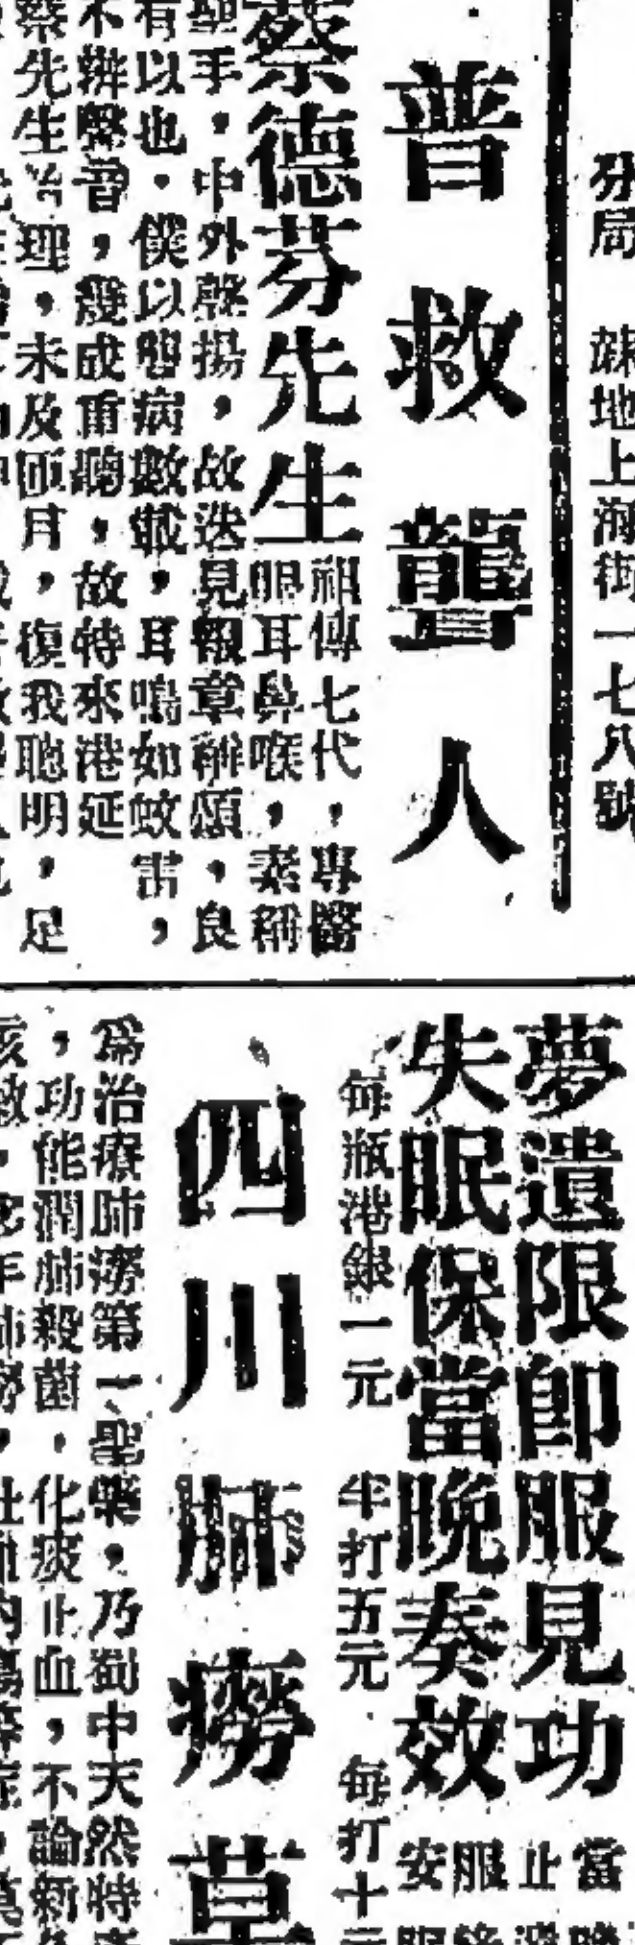 分局　竦地上海街一七八號
普救聾人
蔡德芬先生
祖傳七代，專醫
眼耳鼻喉，素稱
聖手，中外聲揚，故迭見報章稱頌，良
有以也。僕以體病數載，耳鳴如蚊雷，
不辨聲音，幾成重聽，故特來港延
蔡先生治理，未及匝月，復我聰明，足
夢遺限即服見功
失眠保當晚奏效
當
止
服
安
每瓶港銀一元　半打五元　每打十元
四川肺癆草
為治療肺癆第一聖藥，乃蜀中天然特產
，功能潤肺殺菌，化痰止血，不論新